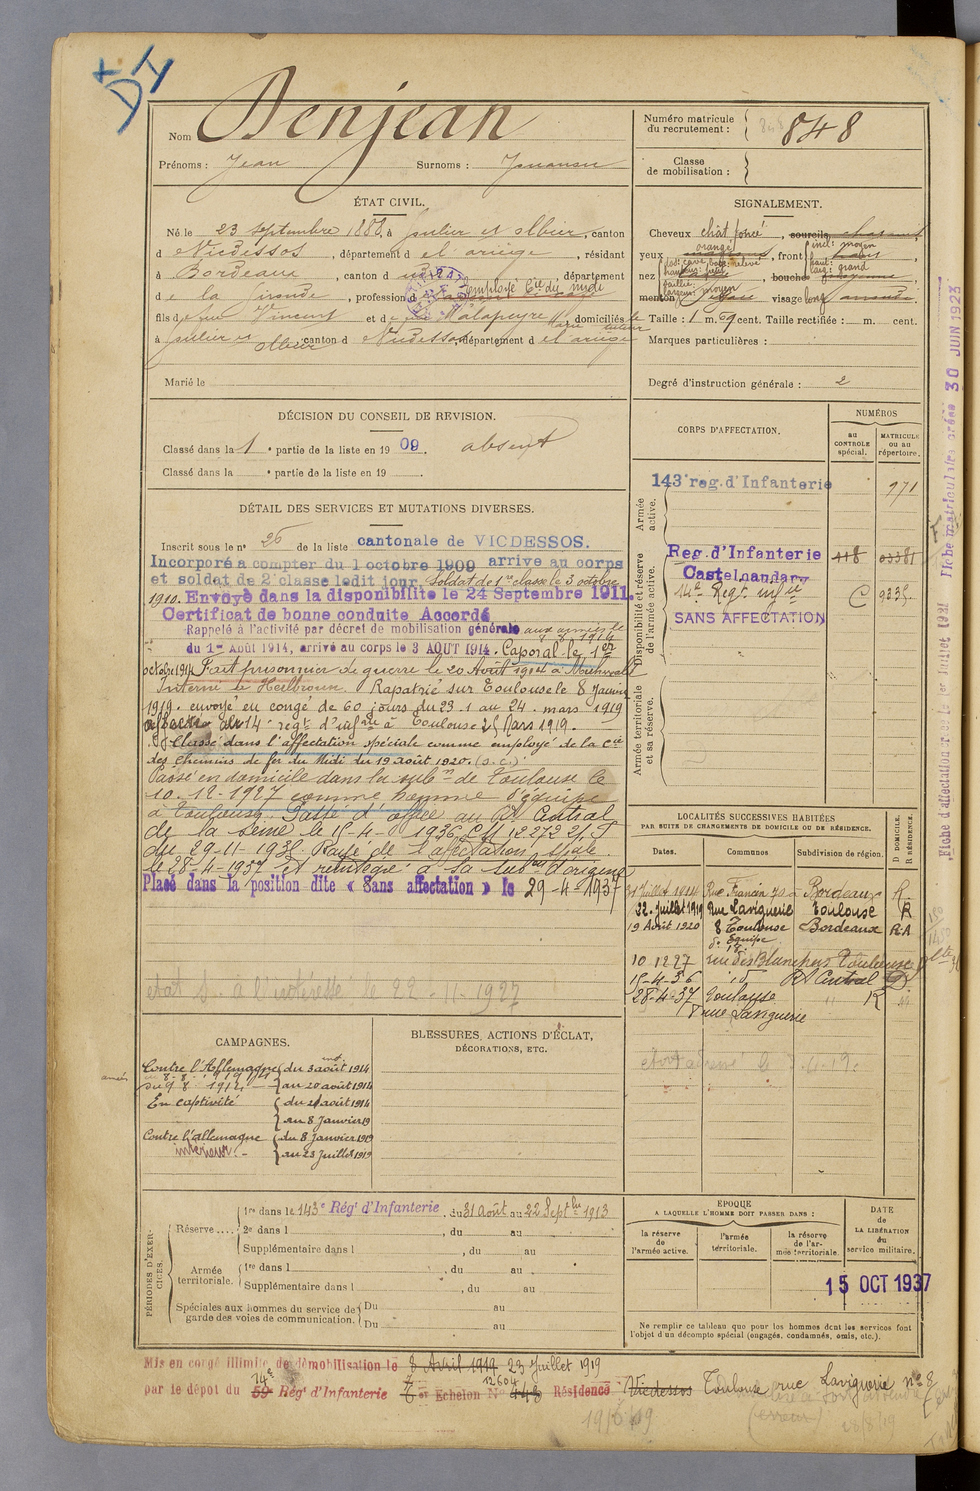 Nom Denjean
Numéro matricule du recrutement : 848
Prénoms : Jean Surnoms :
Classe de mobilisation :
ÉTAT CIVIL.
Né le 23 septembre 1888, à Junier et Olbier, canton
d Vicdessos, département d el ariège, résidant
à Bordeaux, canton d, département
d e la Gironde, profession d employé Cie du midi
fils d e Vincent et de Malapeyre Marie domiciliés
à canton d Vicdessos département d el ariège
Marié le
SIGNALEMENT.
Cheveux chât foncé, sourcils
yeux orangé, front incl: moyen haut: larg: grand
nez dos: cave base: relevé, bouche
menton visage long
Taille : 1 m. 69 cent. Taille rectifiée : m. cent.
Marques particulières :
Degré d'instruction générale : 2
DÉCISION DU CONSEIL DE REVISION.
Classé dans la 1 e partie de la liste en 1909. absent
Classé dans la e partie de la liste en 19
DÉTAIL DES SERVICES ET MUTATIONS DIVERSES.
Inscrit sous le n° 26 de la liste cantonale de VICDESSOS.
Incorporé à compter du 1 octobre 1909 arrive au corps
et soldat de 2e classe ledit jour. Soldat de 1re classe le 3 octobre
1910. Envoyé dans la disponibilité le 24 Septembre 1911.
Certificat de bonne conduite Accordé
Rappelé à l'activité par décret de mobilisation générale aux armées le 7 8 1914
du 1er Août 1914, arrivé au corps le 3 AOUT 1914. Caporal le 1er
octobre 1914 Fait prisonnier de guerre le 20 Août 1914 à
Interné le Heilbronn. Rapatrié sur Toulouse le 8 Janvier
1919. envoyé en congé de 60 jours du 23.1 au 24. mars 1919
affecté au 14e regt d'infrie à Toulouse 25 Mars 1919.
Classé dans l'affectation spéciale comme employé de la Cie
des chemins de fer du Midi du 19 août 1920. (S.C.)
Passé en domicile dans la subon de Toulouse le
10.12.1927 comme homme d'équipe
à Toulouse. Passé d'office au Rt Central
de la Seine le 15-4-1936 CM 12272 2/S
du 29-11-1935 Rayé de l'affectation spéciale
le 28-4-1937 et réintégré à sa subon d'origine
Placé dans la position dite « Sans affectation » le 29-4-1937
le 22-11-1927
CORPS D'AFFECTATION.
NUMÉROS
au CONTROLE spécial.
MATRICULE ou au répertoire.
Armée active.
143e reg. d'Infanterie 971
Disponibilité et réserve de l'armée active.
Reg. d'Infanterie 118 03381
Castelnaudary
14e Regt infie C 9235.
SANS AFFECTATION
Armée territoriale et sa réserve.
LOCALITÉS SUCCESSIVES HABITÉES
PAR SUITE DE CHANGEMENTS DE DOMICILE OU DE RÉSIDENCE.
Dates. Communes Subdivision de région. D DOMICILE. R RÉSIDENCE.
31 Juillet 1914 Rue Francin 70 à Bordeaux R
22. Juillet 1919 Rue Laviguerie Toulouse R
19 Août 1920 8 Toulouse Bordeaux R.A
10 1227 rue des Blanchers Toulouse
15-4-36 id Rt Central D
28-4-37 Toulouse " R
8 rue Laviguerie
CAMPAGNES.
Contre l'Allemagne du 3 août 1914
au 20 août 1914
En captivité du 21 août 1914
au 8 Janvier 19
Contre l'allemagne du 8 Janvier 1919
intérieur. au 23 Juillet 1919
BLESSURES, ACTIONS D'ÉCLAT,
DÉCORATIONS, ETC.
PÉRIODES D'EXERCICES.
Réserve .... 1re dans le 143e Rég' d'Infanterie, du 31 Août au 22 Septbre 1913
2e dans l, du au
Supplémentaire dans l, du au
Armée territoriale. 1re dans l, du au
Supplémentaire dans l, du au
Spéciales aux hommes du service de garde des voies de communication. Du au
Du au
ÉPOQUE
A LAQUELLE L'HOMME DOIT PASSER DANS :
la réserve de l'armée active.
l'armée territoriale.
la réserve de l'armée territoriale.
DATE de LA LIBÉRATION du service militaire.
15 OCT 1937
Ne remplir ce tableau que pour les hommes dont les services font
l'objet d'un décompte spécial (engagés, condamnés, omis, etc.).
Mis en congé illimité de démobilisation le 8 Avril 1919 23 Juillet 1919
par le dépôt du 14e 59 Rég' d'Infanterie Echelon N° 12604 448 Résidence Vicdessos Toulouse rue Laviguerie n° 8
(erreur)
28/8/19
Fiche d'affectation
Fiche matriculaire créée 30 JUIN 1923